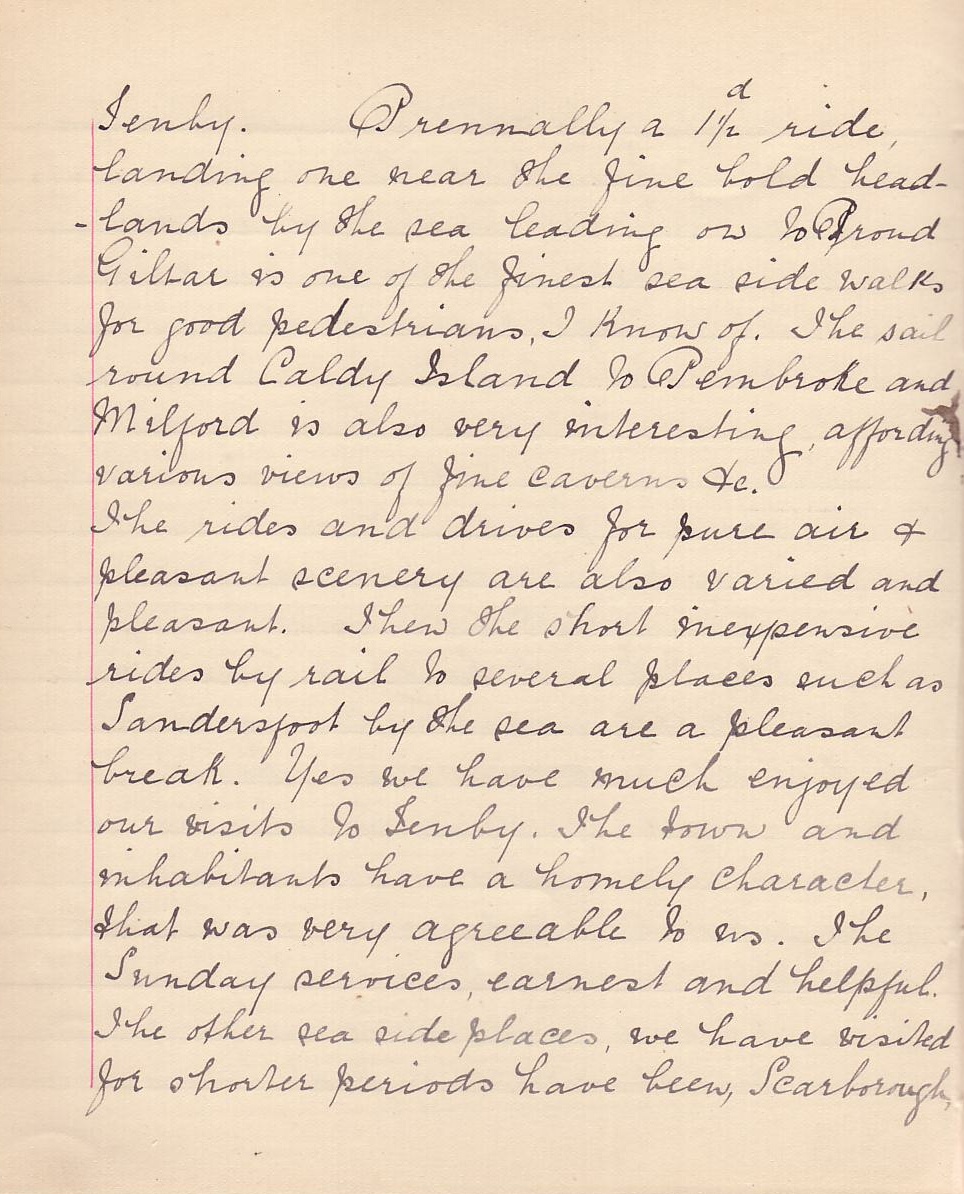 Tenby. Prennally a 1½d ride,
landing one near the fine bold head-
-lands by the sea leading on to Proud
Giltar is one of the finest sea side walks
for good pedestrians, I know of. The sail
round Caldy Island to Pembroke and
Milford is also very interesting, affording
various views of fine caverns &c.
The rides and drives for pure air &
pleasant scenery are also varied and
pleasant. Then the short inexpensive
rides by rail to several places such as
Sandersfoot by the sea are a pleasant
break. Yes we have much enjoyed
our visits to Tenby. The town and
inhabitants have a homely character,
that was very agreeable to us. The
Sunday services, earnest and helpful.
The other sea side places, we have visited
for shorter periods have been, Scarborough,